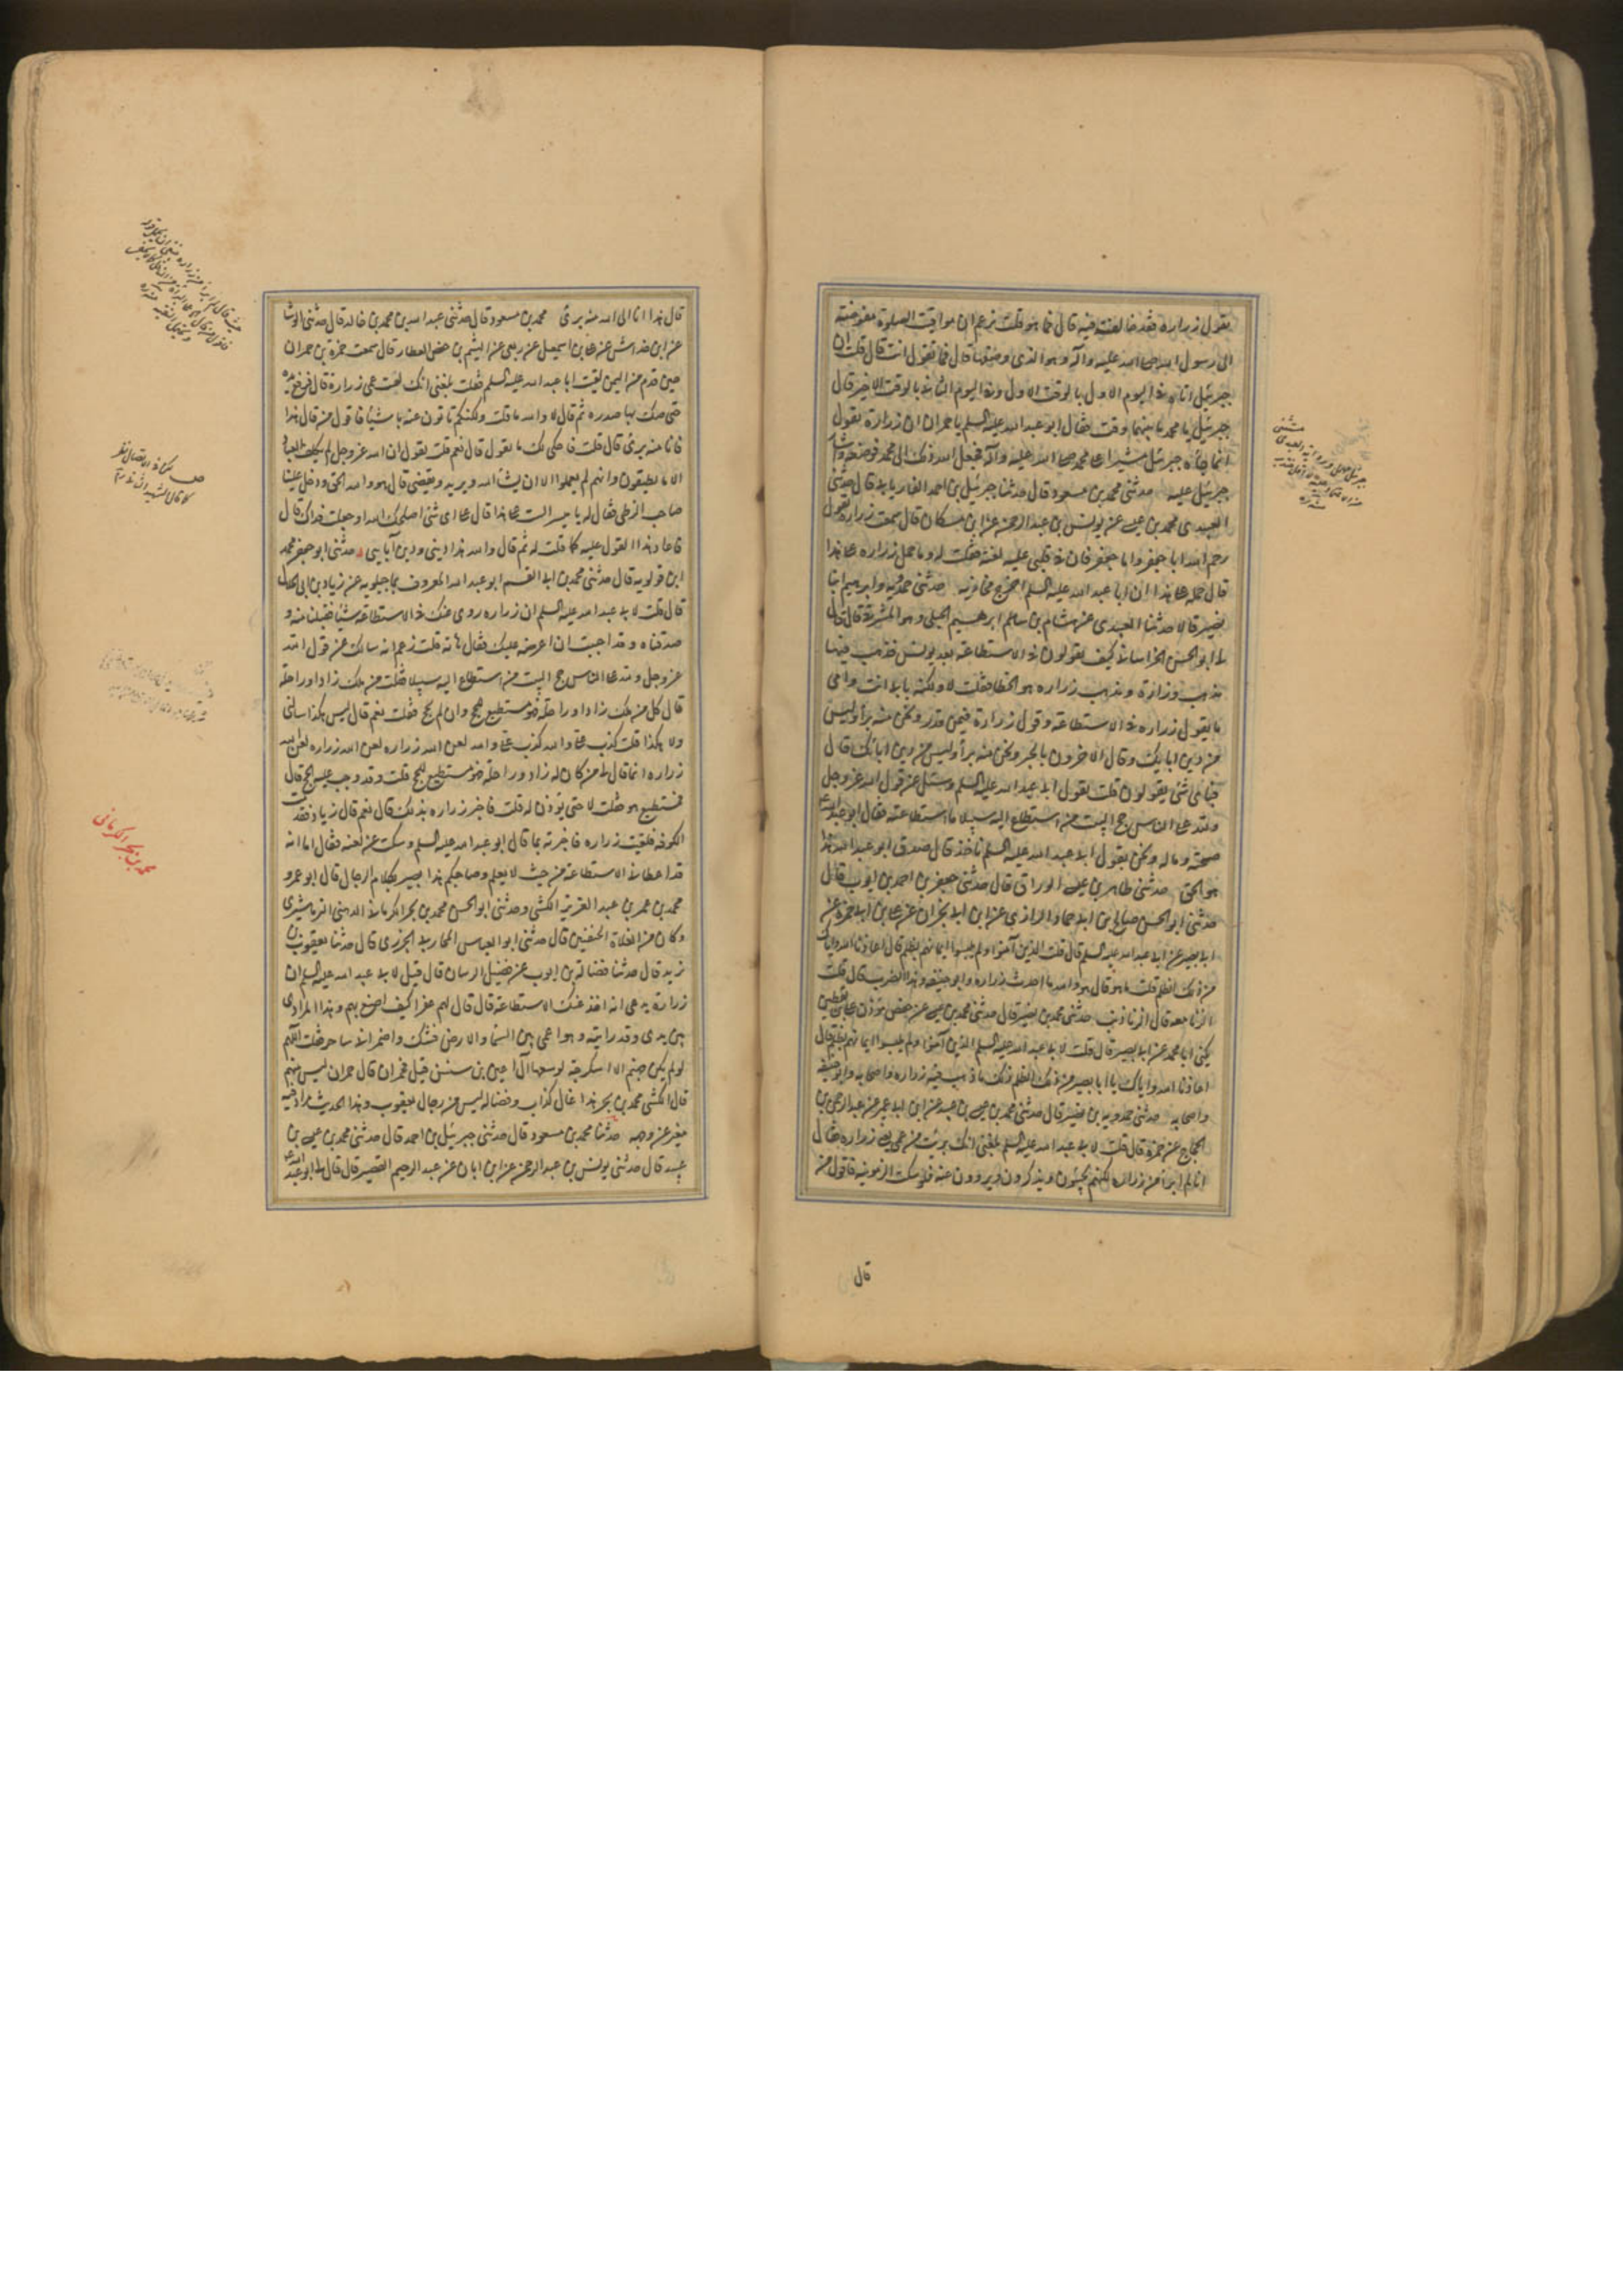 يقول زرارة فقد خالفته فيه قال فما هو قلت يزعم ان مواقيت الصلوة مفوضة
الى رسول الله صلى الله عليه وآله وهو الذي وضعها قال فما تقول انت قال قلت ان
جبرئيل اتاه في اليوم الاول بالوقت الاول وفي اليوم الثاني بالوقت الاخير قال
جبرئيل يا محمد ما بينهما وقت فقال ابو عبد الله عليه السلم يا حمران ان زرارة يقول
انما جاء جبرئيل مشيرا على محمد صلى الله عليه وآله فجعل الله ذلك الى محمد فوضعه واشار
جبرئيل عليه حدثني محمد بن مسعود قال حدثنا جبرئيل بن احمد الفاريابي قال حدثني
العبيدي محمد بن عيسى عن يونس بن عبد الرحمن عن ابن مسكان قال سمعت زرارة يقول
رحم الله ابا جعفر واما جعفر فان في قلبي عليه لفتة فقلت له وما حمل زرارة على هذا
قال حمله على هذا ان ابا عبد الله عليه السلم اخرج مخازيه حدثني حمدويه وابراهيم ابنا
نصير قالا حدثنا العبيدي عن هشام بن سالم ابرهيم الجبلي وهو المشرقي قال قال
لي ابو الحسن الخراساني كيف تقولون في الاستطاعة بعد يونس فذهب فيها
مذهب وزرارة ومذهب زرارة هو الخطا فقلت لا ولكنه بابي انت وامي
ما يقول زرارة في الاستطاعة وقول زرارة فيمن قدر ونحن منه برآء وليس
من دين ابايك وقال الاخرون بالجبر ونحن منه برآء وليس من دين ابايك قال
فباي شئ تقولون قلت بقول ابي عبد الله عليه السلم وسئل عن قول الله عز وجل
ولله على الناس حج البيت من استطاع اليه سبيلا ما استطاعته فقال ابو عبد الله
صحته وماله ونحن بقول ابي عبد الله عليه السلم ناخذ قال صدق ابو عبد الله هذا
هو الحق حدثني طاهر بن عيسى الوراق قال حدثني جعفر بن احمد بن ايوب قال
حدثني ابو الحسن صالح بن ابي حماد الرازي عن ابن ابي نجران عن علي بن ابي حمزة عن
ابي بصير عن ابي عبد الله عليه السلم قال قلت الذين آمنوا ولم يلبسوا ايمانهم بظلم قال اعاذنا الله واياك
من ذلك الظلم قلت ما هو قال هو والله ما احدث زرارة وابو حنيفة وهذا الضرب قال قلت
الزنا معه قال الزنا ذنب حدثني محمد بن نصير قال حدثني محمد بن عيسى عن حفص مؤذن علي بن يقطين
يكنى ابا محمد عن ابي بصير قال قلت لابي عبد الله عليه السلم الذين آمنوا ولم يلبسوا ايمانهم بظلم قال
اعاذنا الله واياك يا ابا بصير من ذلك الظلم ذلك ما ذهب فيه زرارة واصحابه وابو حنيفة
واصحابه حدثني حمدويه بن نصير قال حدثني محمد بن عيسى بن عبيد عن ابن ابي عمير عن عبد الرحمن بن
الحجاج عن حمزة قال قلت لابي عبد الله عليه السلم بلغني انك برئت من عمي يعني زرارة فقال
انا لم ابرأ من زرارة لكنهم يجيئون ويذكرون ويروون عنه فلو سكت الزمونيه فاقول من
قال
قال هذا فانا الى الله منه برئ محمد بن مسعود قال حدثني عبد الله بن محمد بن خالد قال حدثني الوشا
عن ابن خداش عن علي بن اسمعيل عن ربعي عن الهيثم بن حفص العطار قال سمعت حمزة بن حمران
حين قدم من اليمن لقيت ابا عبد الله عليه السلم فقلت بلغني انك لعنت عمي زرارة قال فرفع يده
حتى صك بها صدره ثم قال لا والله ما قلت ولكنكم تاتون عنه باشيا فاقول من قال هذا
فانا منه برئ قال قلت فاحكي لك ما يقول قال نعم قلت يقول ان الله عز وجل لم يكلف العباد
الا ما يطيقون وانهم لم يعملوا الا ان يشاء الله ويريد ويقضي قال هو والله الحق ودخل علينا
صاحب الزطي فقال له يا ميسر الست على هذا قال على اي شئ اصلحك الله او جعلت فداك قال
فاعاد هذا القول عليه كما قلت له ثم قال والله هذا ديني ودين آبايي حدثني ابو جعفر محمد
ابن قولويه قال حدثني محمد بن ابي القسم ابو عبد الله المعروف بماجيلويه عن زياد بن ابي الحلال
قال قلت لابي عبد الله عليه السلم ان زرارة روى عنك في الاستطاعة شيئا فقبلنا منه و
صدقناه وقد احببت ان اعرضه عليك فقال هاته قلت زعم انه سالك عن قول الله
عز وجل ولله على الناس حج البيت من استطاع اليه سبيلا فقلت من ملك زادا وراحلة
قال كل من ملك زادا وراحلة فهو مستطيع للحج وان لم يحج فقلت نعم قال ليس هكذا سالني
ولا هكذا قلت كذب علي والله كذب علي والله لعن الله زرارة لعن الله زرارة لعن الله
زرارة انما قال لي من كان له زاد وراحلة فهو مستطيع للحج قلت وقد وجب عليه الحج قال
فمستطيع هو فقلت لا حتى يؤذن له قلت فاخبر زرارة بذلك قال نعم قال زياد فقدمت
الكوفة فلقيت زرارة فاخبرته بما قال ابو عبد الله عليه السلم وسكت عن لعنه فقال اما انه
قد اعطاني الاستطاعة من حيث لا يعلم وصاحبكم هذا ليس له بصر بكلام الرجال قال ابو عمرو
محمد بن عمر بن عبد العزيز الكشي وحدثني ابو الحسن محمد بن بحر الكرماني الدهني النرماشيري
وكان من الغلاة الحنقين قال حدثني ابو العباس المحاربي الجزري قال حدثنا يعقوب بن
يزيد قال حدثنا فضالة بن ايوب عن فضيل الرسان قال قيل لابي عبد الله عليه السلم ان
زرارة يدعي انه اخذ عنك الاستطاعة قال قال لهم عفرا كيف اصنع بهم وهذا المرادي
بين يدي وقد رايته وهو اعمى بين السماء والارض فشك واضمر اني ساحر فقلت اللهم
لو لم يكن جهنم الا اسكرجة لوسعها آل اعين بن سنسن قيل فحمران قال حمران ليس منهم
قال الكشي محمد بن بحر هذا غال كذاب وفضالة ليس من رجال يعقوب وهذا الحديث مزاد فيه
مغير عن وجهه حدثنا محمد بن مسعود قال حدثني جبرئيل بن احمد قال حدثني محمد بن عيسى بن
عبيد قال حدثني يونس بن عبد الرحمن عن ابن ابان عن عبد الرحيم القصير قال قال لي ابو عبد الله
محمد بن بحر الكرماني